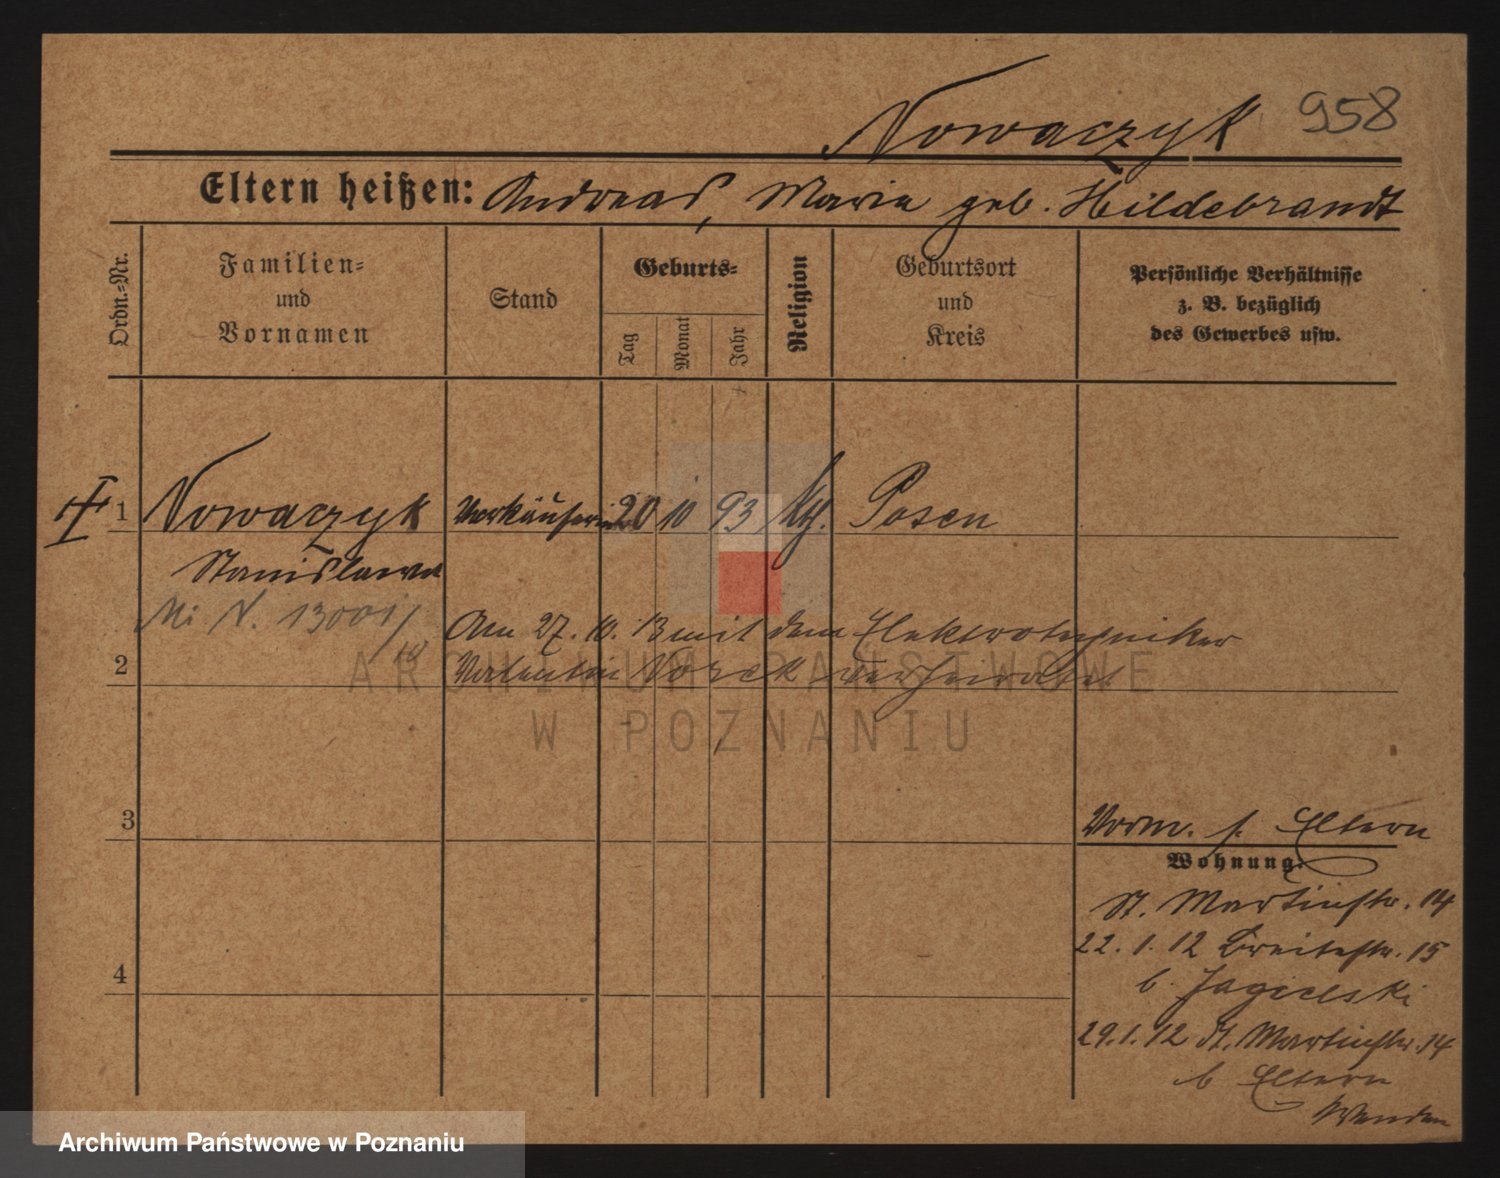 Nowaczyk 958
Eltern heißen: Andreas, Marie geb. Hildebrandt
Ordn.-Nr.
Familien-
und
Vornamen
Stand
Geburts-
Tag
Monat
Jahr
Religion
Geburtsort
und
Kreis
Persönliche Verhältnisse
z. B. bezüglich
des Gewerbes usw.
1 Nowaczyk Verkäuferin 20 10 93 kth. Posen
Stanislawa
N. 13001/
Am 27. 10. 13 mit dem Elektrotechniker
2 Valentin Norek verheiratet
ARCHIWUM PAŃSTWOWE
W POZNANIU
3
Vorm. s. Eltern
Wohnung.
St. Martinstr. 14
22. 1. 12 Breitestr. 15
4
b. Jagielski
29. 1. 12 St. Martinstr. 14
b Eltern
Wenden
Archiwum Państwowe w Poznaniu